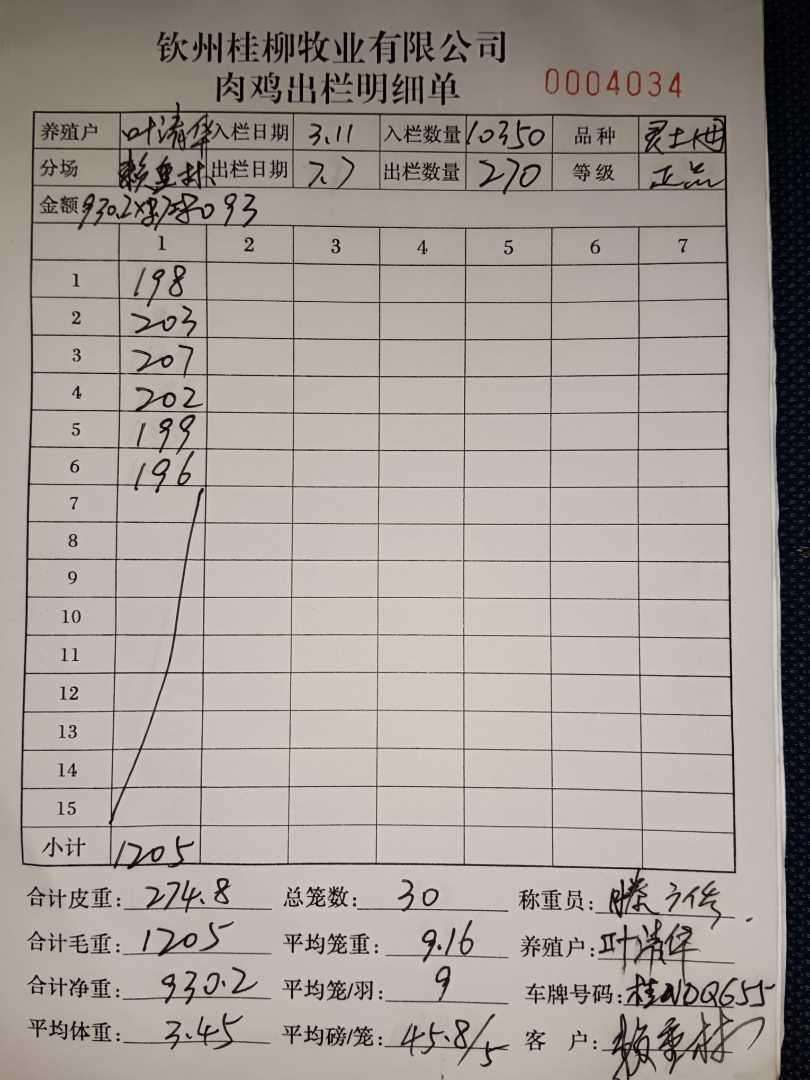 钦州桂柳牧业有限公司
肉鸡出栏明细单 0004034
养殖户 叶清华 入栏日期 3.11 入栏数量 10350 品种 灵土母
分场 赖重林 出栏日期 7.7 出栏数量 270 等级 正品
金额 930.2
1 2 3 4 5 6 7
1 198
2 203
3 207
4 202
5 199
6 196
7
8
9
10
11
12
13
14
15
小计 1205
合计皮重: 274.8 总笼数: 30 称重员:
合计毛重: 1205 平均笼重: 9.16 养殖户: 叶清华
合计净重: 930.2 平均笼/羽: 9 车牌号码: 桂NDQ655
平均体重: 3.45 平均磅/笼: 45.8/5 客户: 赖重林